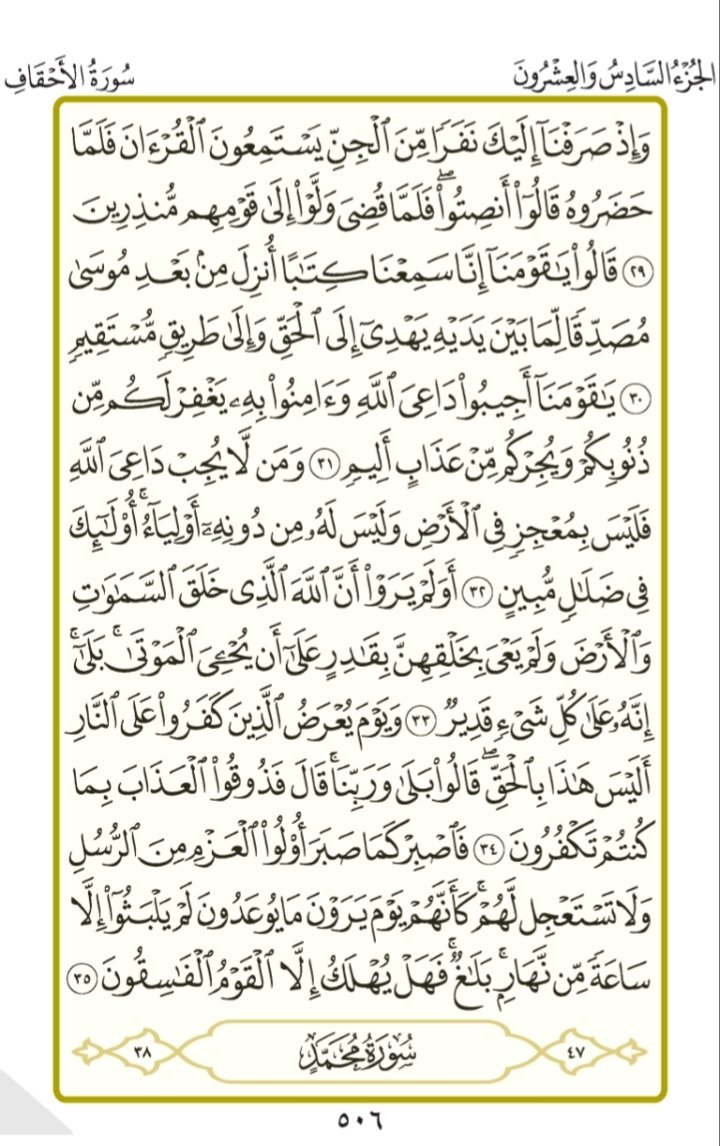 الجُزْءُ السَّادِسُ وَالعِشْرُونَ سُورَةُ الأَحْقَافِ
وَإِذْ صَرَفْنَآ إِلَيْكَ نَفَرًا مِّنَ ٱلْجِنِّ يَسْتَمِعُونَ ٱلْقُرْءَانَ فَلَمَّا
حَضَرُوهُ قَالُوٓا۟ أَنصِتُوا۟ۖ فَلَمَّا قُضِىَ وَلَّوْا۟ إِلَىٰ قَوْمِهِم مُّنذِرِينَ
٢٩ قَالُوا۟ يَـٰقَوْمَنَآ إِنَّا سَمِعْنَا كِتَـٰبًا أُنزِلَ مِنۢ بَعْدِ مُوسَىٰ
مُصَدِّقًا لِّمَا بَيْنَ يَدَيْهِ يَهْدِىٓ إِلَى ٱلْحَقِّ وَإِلَىٰ طَرِيقٍ مُّسْتَقِيمٍ
٣٠ يَـٰقَوْمَنَآ أَجِيبُوا۟ دَاعِىَ ٱللَّهِ وَءَامِنُوا۟ بِهِۦ يَغْفِرْ لَكُم مِّن
ذُنُوبِكُمْ وَيُجِرْكُم مِّنْ عَذَابٍ أَلِيمٍ ٣١ وَمَن لَّا يُجِبْ دَاعِىَ ٱللَّهِ
فَلَيْسَ بِمُعْجِزٍ فِى ٱلْأَرْضِ وَلَيْسَ لَهُۥ مِن دُونِهِۦٓ أَوْلِيَآءُۚ أُو۟لَـٰٓئِكَ
فِى ضَلَـٰلٍ مُّبِينٍ ٣٢ أَوَلَمْ يَرَوْا۟ أَنَّ ٱللَّهَ ٱلَّذِى خَلَقَ ٱلسَّمَـٰوَٰتِ
وَٱلْأَرْضَ وَلَمْ يَعْىَ بِخَلْقِهِنَّ بِقَـٰدِرٍ عَلَىٰٓ أَن يُحْـِۧىَ ٱلْمَوْتَىٰۚ بَلَىٰٓۚ
إِنَّهُۥ عَلَىٰ كُلِّ شَىْءٍ قَدِيرٌ ٣٣ وَيَوْمَ يُعْرَضُ ٱلَّذِينَ كَفَرُوا۟ عَلَى ٱلنَّارِ
أَلَيْسَ هَـٰذَا بِٱلْحَقِّۖ قَالُوا۟ بَلَىٰ وَرَبِّنَاۚ قَالَ فَذُوقُوا۟ ٱلْعَذَابَ بِمَا
كُنتُمْ تَكْفُرُونَ ٣٤ فَٱصْبِرْ كَمَا صَبَرَ أُو۟لُوا۟ ٱلْعَزْمِ مِنَ ٱلرُّسُلِ
وَلَا تَسْتَعْجِل لَّهُمْۚ كَأَنَّهُمْ يَوْمَ يَرَوْنَ مَا يُوعَدُونَ لَمْ يَلْبَثُوٓا۟ إِلَّا
سَاعَةً مِّن نَّهَارٍۭۚ بَلَـٰغٌۚ فَهَلْ يُهْلَكُ إِلَّا ٱلْقَوْمُ ٱلْفَـٰسِقُونَ ٣٥
٤٧ سُورَةُ مُحَمَّدٍ ٣٨
٥٠٦